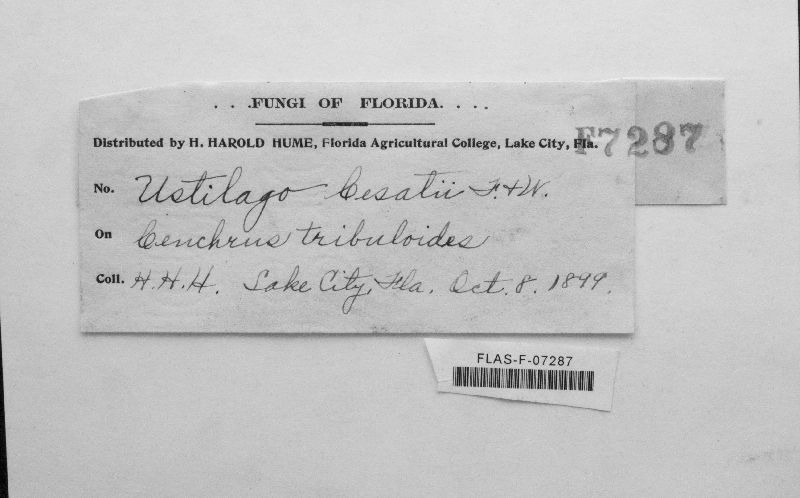 . . .FUNGI OF FLORIDA. . . .
Distributed by H. HAROLD HUME, Florida Agricultural College, Lake City, Fla.
F7287
No. Ustilago Cesatii F. & W.
On Cenchrus tribuloides
Coll. H. H. H. Lake City, Fla. Oct. 8. 1899.
FLAS-F-07287